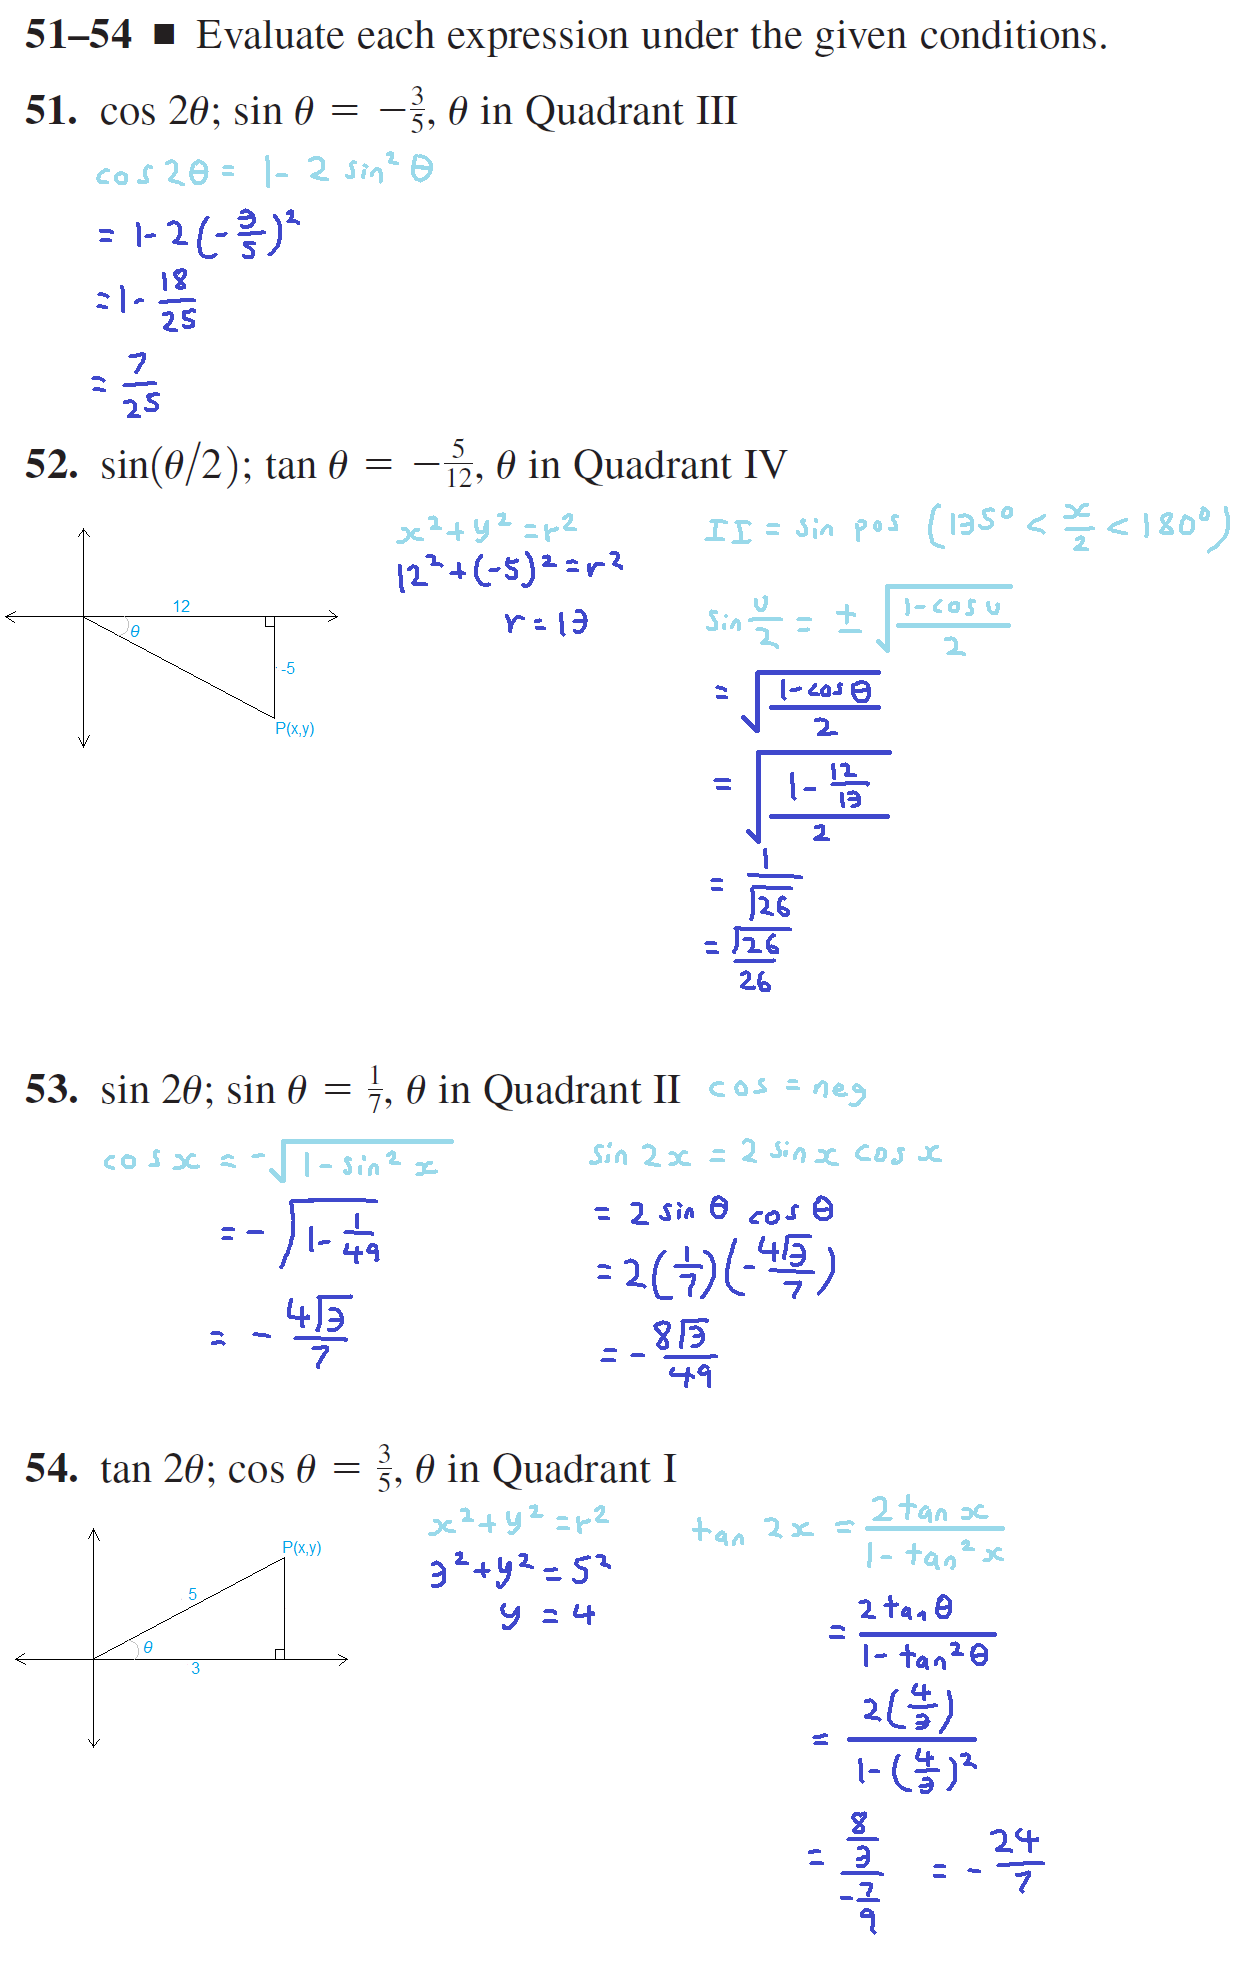 51–54 ■ Evaluate each expression under the given conditions.
51. cos 2θ; sin θ = −3/5, θ in Quadrant III
cos 2θ = 1 - 2 sin² θ
= 1 - 2(-3/5)²
= 1 - 18/25
= 7/25
52. sin(θ/2); tan θ = −5/12, θ in Quadrant IV
12
θ
-5
P(x,y)
x² + y² = r²
12² + (-5)² = r²
r = 13
II = sin pos (135° < x/2 < 180°)
sin u/2 = ± √((1 - cos u)/2)
= √((1 - cos θ)/2)
= √((1 - 12/13)/2)
= 1/√26
= √26/26
53. sin 2θ; sin θ = 1/7, θ in Quadrant II cos = neg
cos x = -√(1 - sin² x)
= -√(1 - 1/49)
= - 4√3/7
sin 2x = 2 sin x cos x
= 2 sin θ cos θ
= 2(1/7)(-4√3/7)
= - 8√3/49
54. tan 2θ; cos θ = 3/5, θ in Quadrant I
P(x,y)
5
θ
3
x² + y² = r²
3² + y² = 5²
y = 4
tan 2x = 2 tan x/(1 - tan² x)
= 2 tan θ/(1 - tan² θ)
= 2(4/3)/(1 - (4/3)²)
= (8/3)/(-7/9) = - 24/7